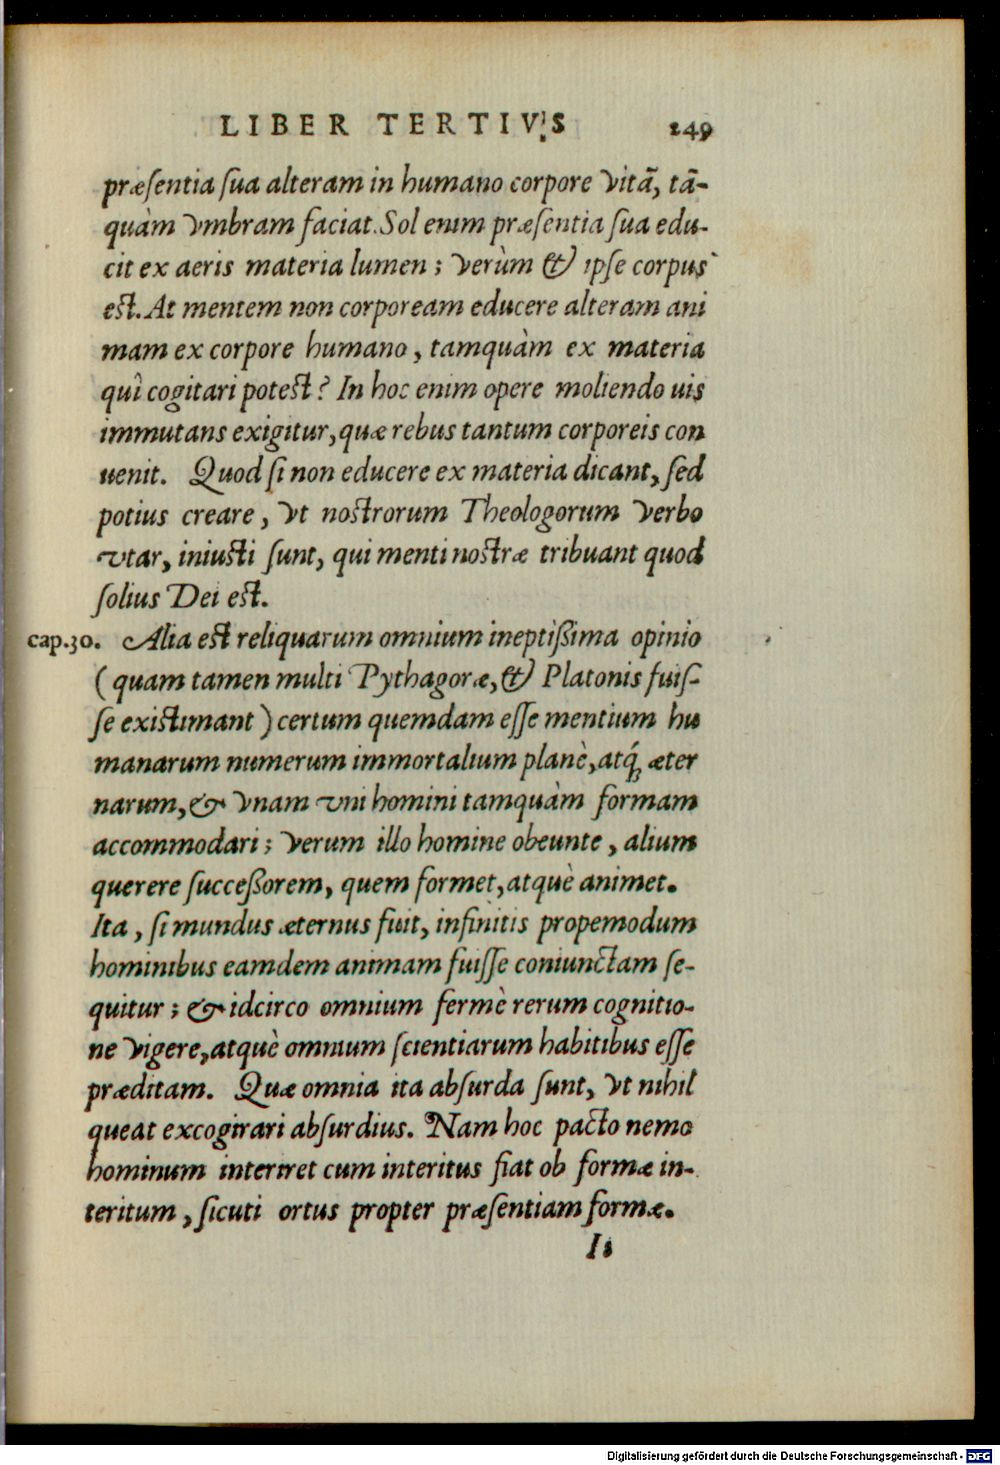 LIBER TERTIVS 249
præſentia ſua alteram in humano corpore vitã, tã-
quàm vmbram faciat. Sol enim præſentia ſua edu-
cit ex aeris materia lumen; verùm & ipſe corpus
eſt. At mentem non corpoream educere alteram ani
mam ex corpore humano, tamquàm ex materia
quî cogitari poteſt? In hoc enim opere moliendo uis
immutans exigitur, quæ rebus tantum corporeis con
uenit. Quod ſi non educere ex materia dicant, ſed
potius creare, vt noſtrorum Theologorum verbo
vtar, iniuſti ſunt, qui menti noſtræ tribuant quod
ſolius Dei eſt.
cap.30. Alia eſt reliquarum omnium ineptißima opinio
(quam tamen multi Pythagoræ, & Platonis fuiſ-
ſe exiſtimant) certum quemdam eſſe mentium hu
manarum numerum immortalium planè, atq́; æter
narum, & vnam vni homini tamquàm formam
accommodari; verum illo homine obeunte, alium
querere ſucceßorem, quem formet, atquè animet.
Ita, ſi mundus æternus fuit, infinitis propemodum
hominibus eamdem animam fuiſſe coniunctam ſe-
quitur; & idcirco omnium fermè rerum cognitio-
ne vigere, atquè omnium ſcientiarum habitibus eſſe
præditam. Quæ omnia ita abſurda ſunt, vt nihil
queat excogirari abſurdius. Nam hoc pacto nemo
hominum interiret cum interitus fiat ob formæ in-
teritum, ſicuti ortus propter præſentiam formæ.
Ii
Digitalisierung gefördert durch die Deutsche Forschungsgemeinschaft - DFG